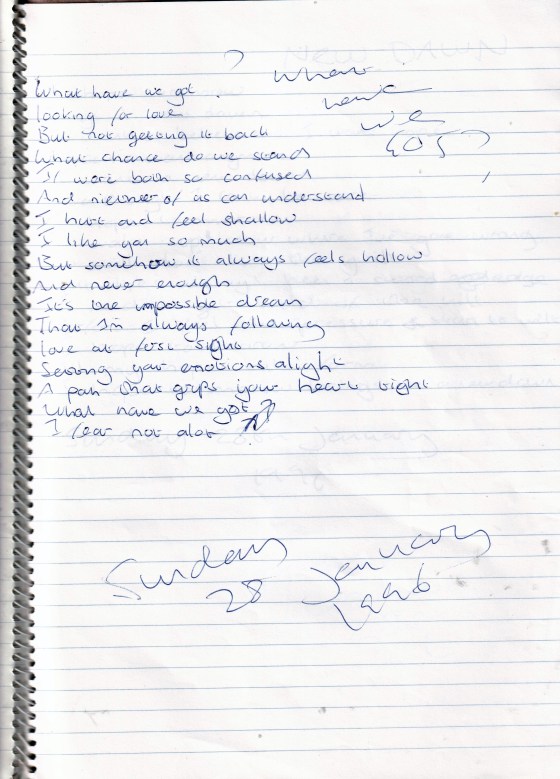 ? What
have
we
GOT?
What have we got
looking for love
But not getting it back
What chance do we stand
If were both so confused
And niether of us can understand
I hurt and feel shallow
I like you so much
But somehow it always feels hollow
And never enough
It's the impossible dream
That I'm always following
love at first sight
Setting your emotions alight
A pain that grips your heart tight
What have we got?
I fear not alot
Sunday
28 January
1996